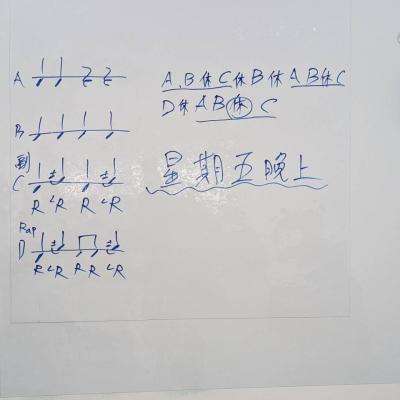 A
B
副
C
R L R R L R
Rap
D
R L R R R L R
A.B休C休B休AB休C
D休AB休C
星期五晚上